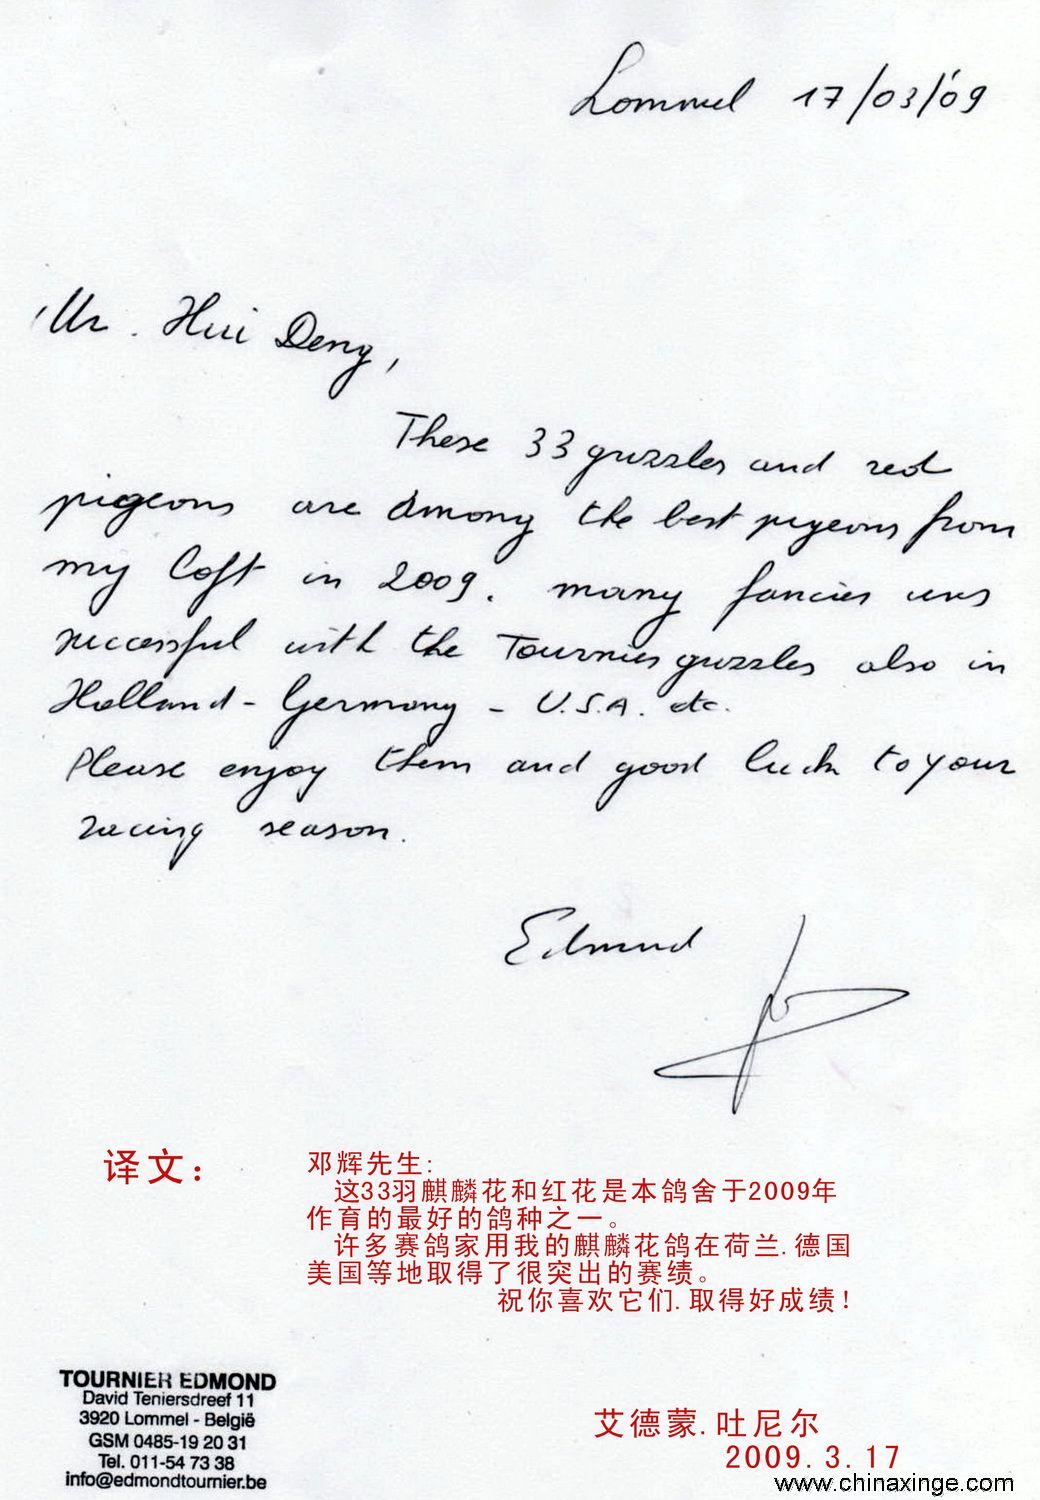 Lommel 17/03/'09
Mr. Hui Deng,
These 33 grizzles and red
pigeons are among the best pigeons from
my loft in 2009. many fanciers
successful with the Tournier grizzles also in
Holland - Germany - U.S.A. etc.
Please enjoy them and good luck to your
racing season.
Edmond
译文：
邓辉先生:
这33羽麒麟花和红花是本鸽舍于2009年
作育的最好的鸽种之一。
许多赛鸽家用我的麒麟花鸽在荷兰.德国
美国等地取得了很突出的赛绩。
祝你喜欢它们.取得好成绩！
TOURNIER EDMOND
David Teniersdreef 11
3920 Lommel - België
GSM 0485-19 20 31
Tel. 011-54 73 38
info@edmondtournier.be
艾德蒙.吐尼尔
2009.3.17
www.chinaxinge.com